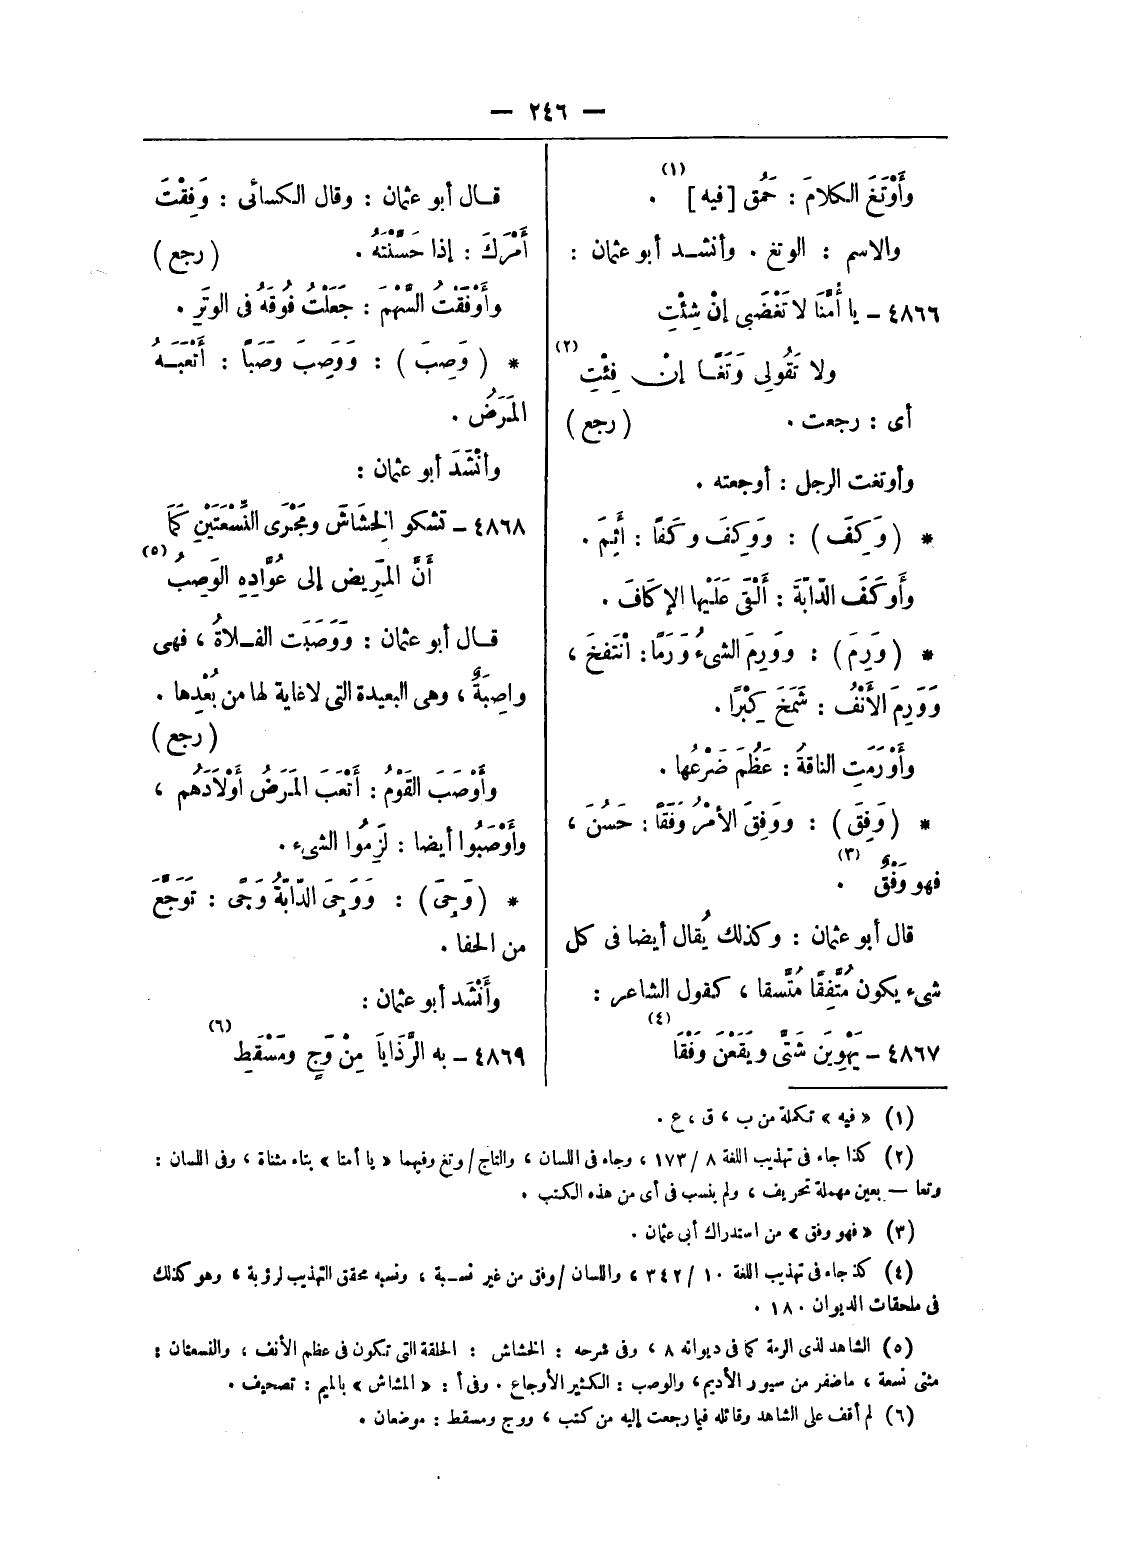 — ٢٤٦ —
وأَوْتَغَ الكلامَ : حَمُق [فيه] (١) .
والاسم : الوتغ . وأنشد أبو عثمان :
٤٨٦٦ – يا أُمَّنَا لا تَغْضَبى إنْ شِئْتِ
ولا تَقُولِى وَتَغًا إنْ فِئْتِ (٢)
أى : رجعت . (رجع)
وأوتغت الرجل : أوجعته .
* (وَكِفَ) : ووَكِفَ وكَفًا : أَثِمَ .
وأَوكَفَ الدّابّةَ : أَلْقَى عَلَيْها الإكَافَ .
* (وَرِمَ) : ووَرِمَ الشىءُ وَرَمًا : انْتَفخَ ،
وَوَرِمَ الأَنْفُ : شَمَخَ كِبْرًا .
وأَوْرَمَتِ الناقةُ : عَظُمَ ضَرْعُها .
* (وَفِقَ) : ووَفِقَ الأمْرُ وَفَقًا : حَسُنَ ،
فهو وَفْقٌ (٣) .
قال أبو عثمان : وكذلك يُقال أيضا فى كل
شىء يكون مُتَّفِقًا مُتَّسقا ، كقول الشاعر :
٤٨٦٧ – يَهْوِين شَتَّى ويَقَعْنَ وَفْقَا (٤)
قال أبو عثمان : وقال الكسائى : وَفِقْتَ
أَمْرَكَ : إذا حَسَّنْتَهُ . (رجع)
وأَوْفَقْتُ السَّهْمَ : جَعَلْتُ فُوقَهُ فى الوتَرِ .
* (وَصِبَ) : وَوَصِبَ وَصَبًا : أَتْعَبَهُ
المَرَضُ .
وأنْشَدَ أبو عثمان :
٤٨٦٨ – تشكو الخِشَاشَ ومَجْرَى النِّسْعَتَيْنِ كَمَا
أَنَّ المَرِيض إلى عُوَّادِهِ الوَصِبُ (٥)
قال أبو عثمان : وَوَصَبَت الفلاةُ ، فهى
واصِبَةٌ ، وهى البعيدة التى لا غاية لها من بُعْدِها .
(رجع)
وأَوْصَبَ القَوْمُ : أَتْعَبَ المَرَضُ أَوْلَادَهُم ،
وأَوْصَبُوا أيضا : لَزِمُوا الشىء .
* (وَجِىَ) : وَوَجِىَ الدّابّةُ وَجًى : تَوَجَّعَ
من الحفا .
وأَنْشَد أبو عثمان :
٤٨٦٩ – به الرَّذَايَا مِنْ وَجٍ ومَسْقَطِ (٦)
(١) « فيه » تكملة من ب ، ق ، ع .
(٢) كذا جاء فى تهذيب اللغة ٨ / ١٧٣ ، وجاء فى اللسان ، والتاج / وتغ وفيهما « يا أمتا » بتاء مثناة ، وفى اللسان :
وتعا – بعين مهملة تحريف ، ولم ينسب فى أى من هذه الكتب .
(٣) « فهو وفق » من استدراك أبى عثمان .
(٤) كذ جاء فى تهذيب اللغة ١٠ / ٣٤٢ ، واللسان / وفق من غير نسبة ، ونسبه محقق التهذيب لرؤبة ، وهو كذلك
فى ملحقات الديوان ١٨٠ .
(٥) الشاهد لذى الرمة كما فى ديوانه ٨ ، وفى شرحه : الخشاش : الحلقة التى تكون فى عظم الأنف ، والنسعتان :
مثنى نسعة ، ماضفر من سيور الأديم ، والوصب : الكثير الأوجاع . وفى أ : « المشاش » بالميم : تصحيف .
(٦) لم أقف على الشاهد وقائله فيما رجعت إليه من كتب ، ووج ومسقط : موضعان .